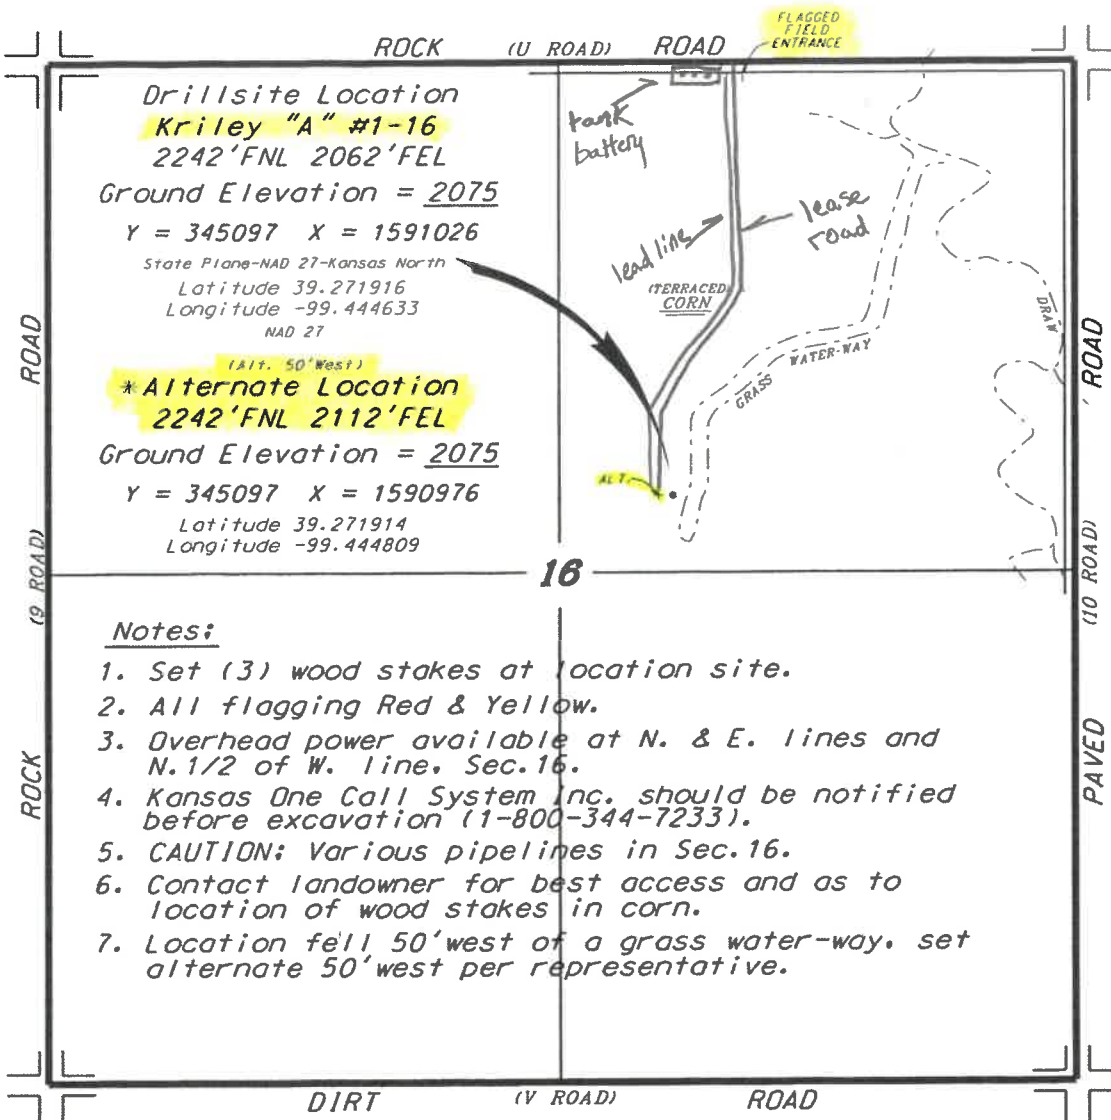 FLAGGED
FIELD
ENTRANCE
ROCK (U ROAD) ROAD
Drillsite Location
Kriley "A" #1-16
2242'FNL 2062'FEL
Ground Elevation = 2075
Y = 345097 X = 1591026
State Plane-NAD 27-Kansas North
Latitude 39.271916
Longitude -99.444633
NAD 27
(Alt. 50'West)
*Alternate Location
2242'FNL 2112'FEL
Ground Elevation = 2075
Y = 345097 X = 1590976
Latitude 39.271914
Longitude -99.444809
tank
battery
lease
road
lead line
(TERRACED)
CORN
DRAW
GRASS WATER-WAY
ALT.
16
ROCK (9 ROAD) ROAD
PAVED (10 ROAD) ROAD
Notes:
1. Set (3) wood stakes at location site.
2. All flagging Red & Yellow.
3. Overhead power available at N. & E. lines and
N.1/2 of W. line, Sec.16.
4. Kansas One Call System Inc. should be notified
before excavation (1-800-344-7233).
5. CAUTION: Various pipelines in Sec.16.
6. Contact landowner for best access and as to
location of wood stakes in corn.
7. Location fell 50'west of a grass water-way. set
alternate 50'west per representative.
DIRT (V ROAD) ROAD